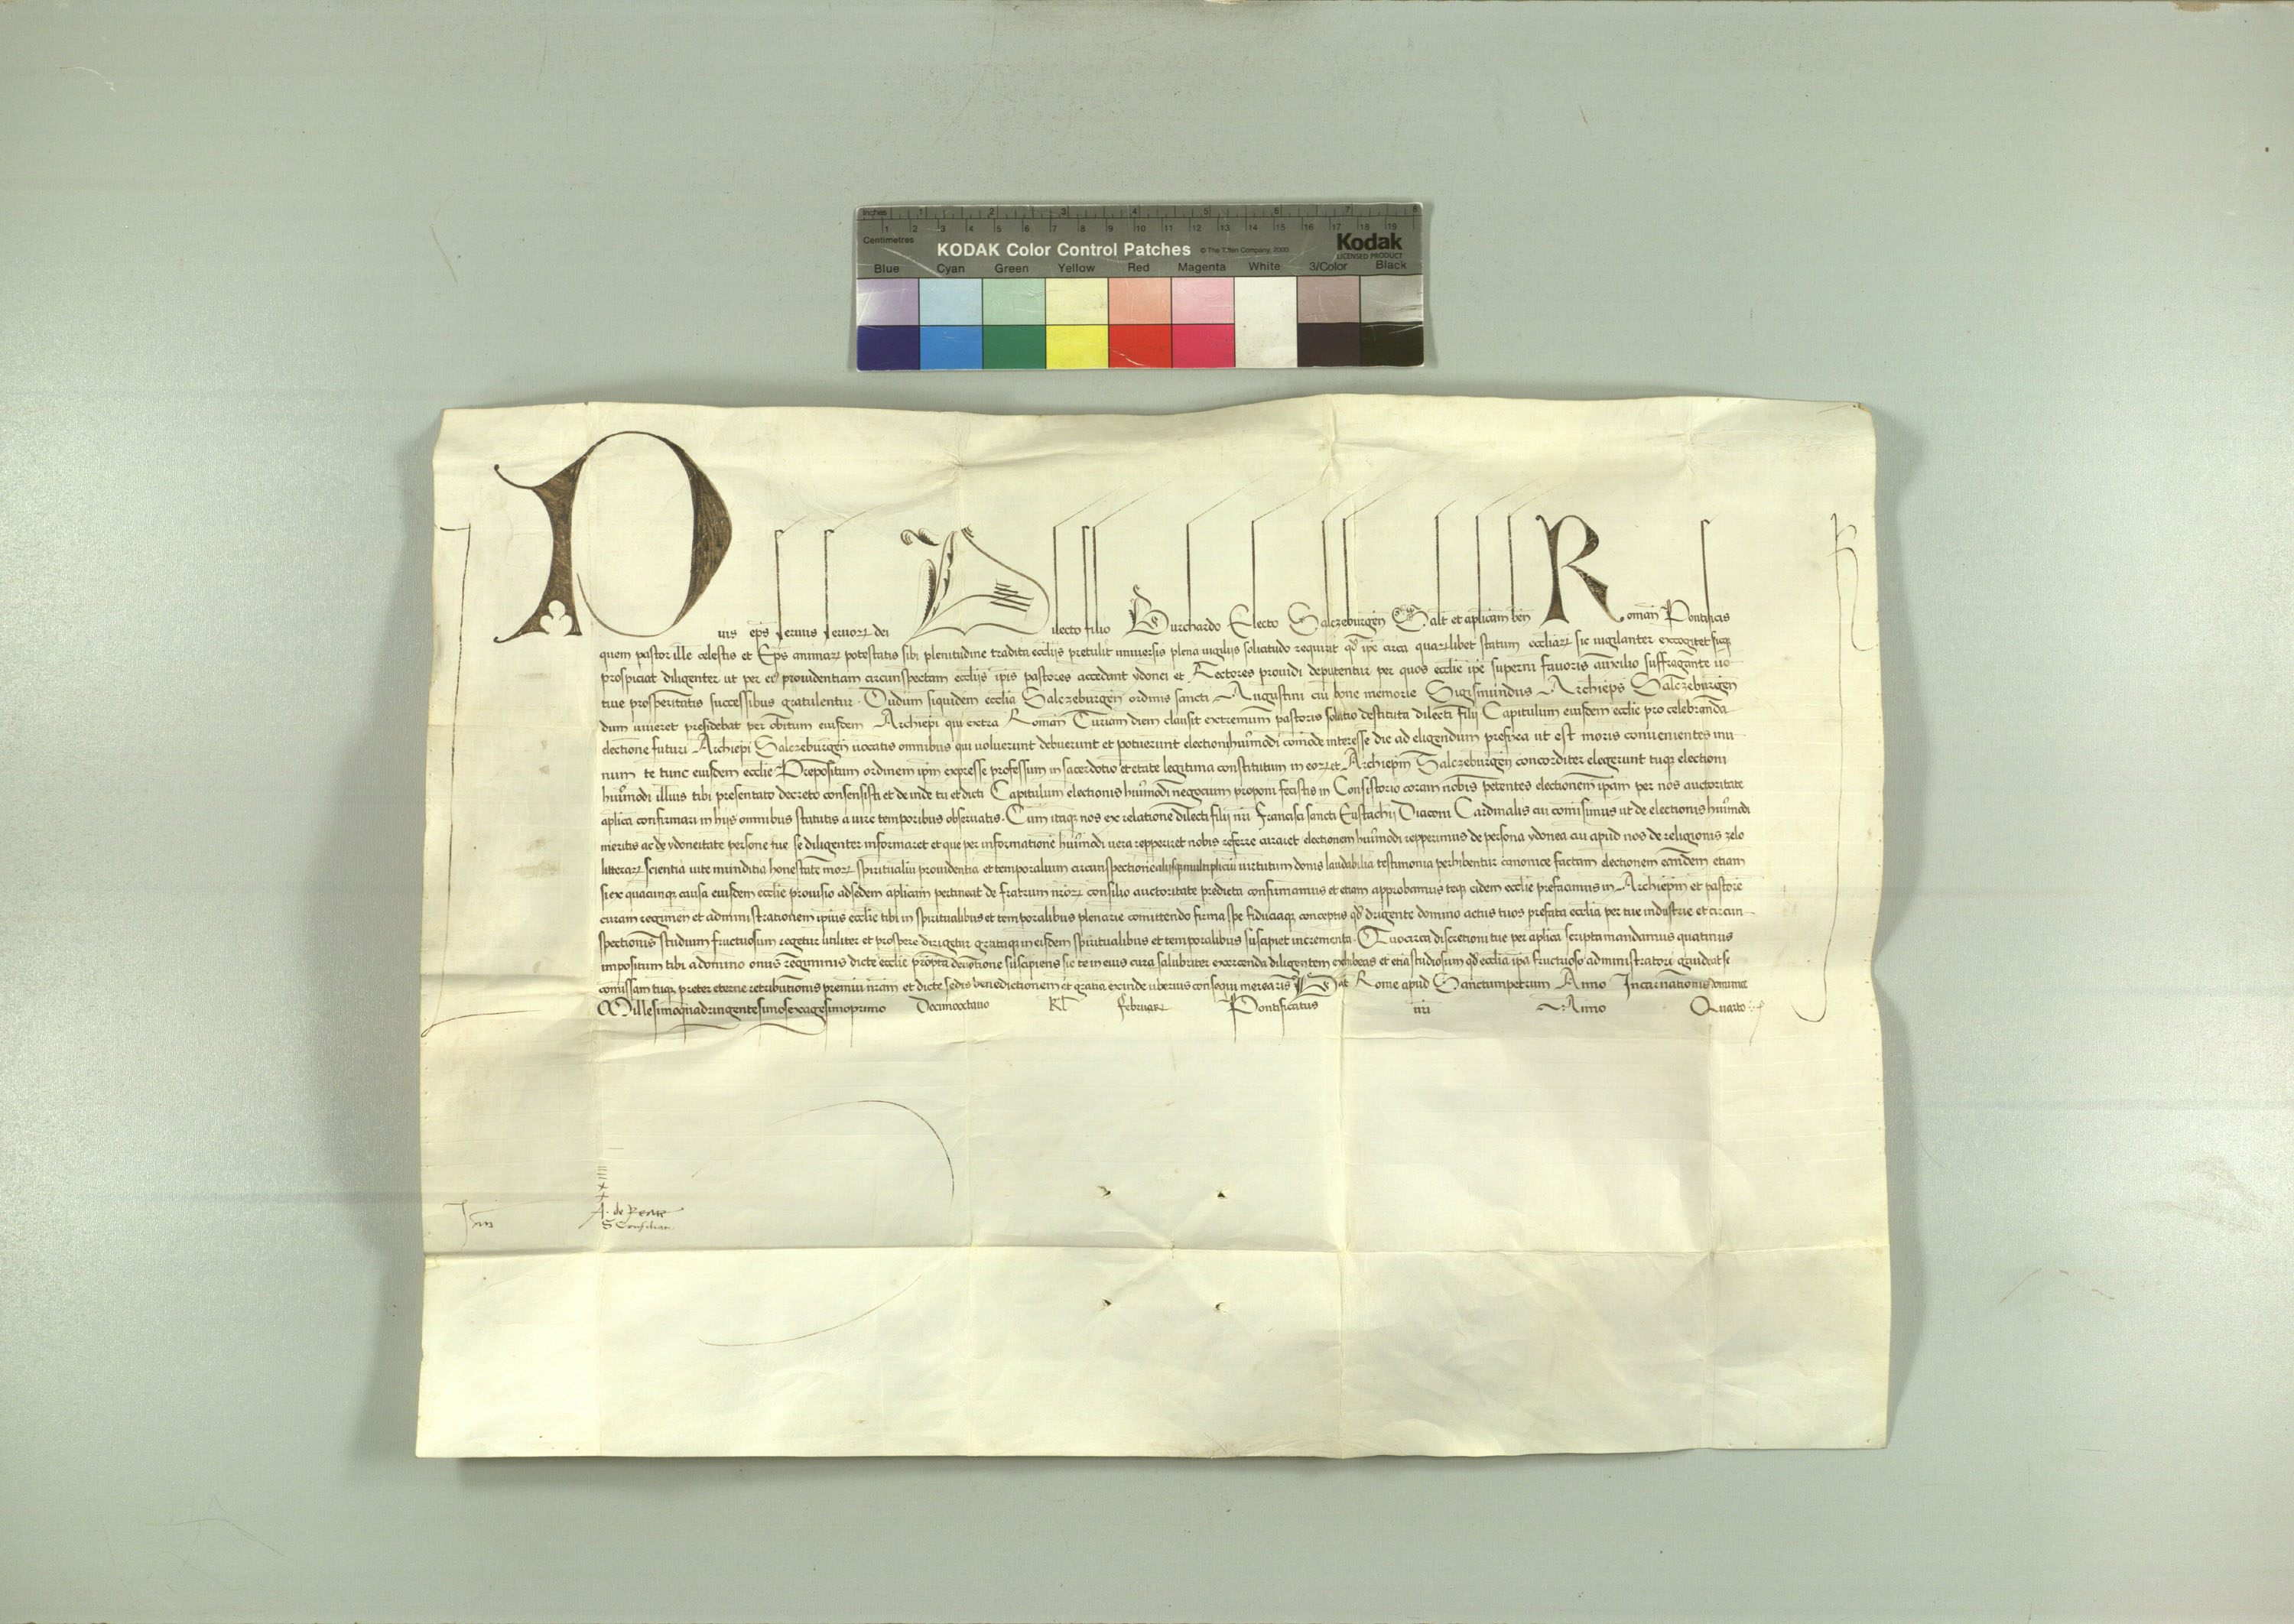 Inches 1 2 3 4 5 6 7 8
Centimetres 1 2 3 4 5 6 7 8 9 10 11 12 13 14 15 16 17 18 19
KODAK Color Control Patches © The Tiffen Company, 2000 Kodak
LICENSED PRODUCT
Blue Cyan Green Yellow Red Magenta White 3/Color Black
Pius ep̄s seruus seruoꝝ dei Dilecto filio Burchardo Electo Salczeburgen̄ Salt̄ et aplicam ben̄ Roman̄ Pontificis
quem pastor ille celestis et Ep̄s animaꝝ potestatis sibi plenitudine tradita ecclijs pretulit uniuersis plena uigilijs solicitudo requirit qđ ip̄e circa quarūlibet statum ecclīaꝝ sic uigilanter excogitet sicqꝫ
prospiciat diligenter ut per eiꝰ prouidentiam circunspectam ecclijs ip̄is pastores accedant ydonei et Rectores prouidi deputentur per quos ecclie ip̄e superni fauoris auxilio suffragante uo
tiue prosperitatis successibus gratulentur. Dudum siquidem ecclia Salczeburgen̄ ordinis sancti Augustini cui bone memorie Sigismundus Archiep̄s Salczeburgen̄
dum uiueret presidebat per obitum eiusdem Archiep̄i qui extra Roman̄ Curiam diem clausit extremum pastoris solatio destituta dilecti filij Capitulum eiusdem ecclie pro celebranda
electione futuri Archiep̄i Salczeburgen̄ uocatis omnibus qui uoluerunt debuerunt et potuerunt electioni huiꝰmodi com̄ode interesse die ad eligendum prefixa ut est moris conuenientes in u
num te tunc eiusdem ecclie Prepositum ordinem ip̄m expresse professum in sacerdotio et etate legitima constitutum in eoꝝ et Archiep̄m Salczeburgen̄ concorditer elegerunt tuqꝫ electioni
huiꝰmodi illius tibi presentato decreto consensisti et deinde tu et dicti Capitulum electionis huiꝰmodi negocium proponi fecistis in Consistorio coram nobis petentes electionem ip̄am per nos auctoritate
aplica confirmari in hijs omnibus statutis a iure temporibus obseruatis. Cum itaqꝫ nos ex relatione dilecti filij nr̄i Francisci sancti Eustachij Diaconi Cardinalis cui com̄isimus ut de electionis huiꝰmodi
meritis ac de ydoneitate persone tue se diligenter informaret et que per informationē huiꝰmodi uera repperiret nobis referre curaret electionem huiꝰmodi repperimus de persona ydonea cui apud nos de religionis zelo
litteraꝝ scientia uite munditia honestate moꝝ spiritualiū prouidentia et temporalium circunspectione alijsqꝫ multiplicū uirtutum donis laudabilia testimonia perhibentur canonice factam electionem eandem etiam
si ex quacunqꝫ causa eiusdem ecclie prouisio ad sedem aplicam pertineat de fratrum nr̄oꝝ consilio auctoritate predicta confirmamus et etiam approbamus teqꝫ eidem ecclie preficimus in Archiep̄m et pastorē
curam regimen et administrationem ipsius ecclie tibi in spiritualibus et temporalibus plenarie com̄ittendo firma spe fiduciaqꝫ conceptis qđ dirigente domino actus tuos prefata ecclia per tue industrie et circun
spectionis studium fructuosum regetur utiliter et prospere dirigetur grataqꝫ in eisdem spiritualibus et temporalibus suscipiet incrementa. Quocirca discretioni tue per aplica scripta mandamus quatinus
impositum tibi a domino onus regiminis dicte ecclie prompta deuotione suscipiens sic te in eius cura salubriter exercenda diligentem exhibeas et etiā studiosum qđ ecclia ip̄a fructuoso administratori gaudeat se
com̄issam tuqꝫ preter eterne retributionis premiū nr̄am et dicte sedis benedictionem et gratiā exinde uberius consequi merearis Dat̄ Rome apud Sanctumpetrum Anno Incarnationis Dominice
Millesimoquadringentesimosexagesimoprimo Decimooctauo Kl̄ Februarꝝ Pontificatus nr̄i Anno Quarto
A. de